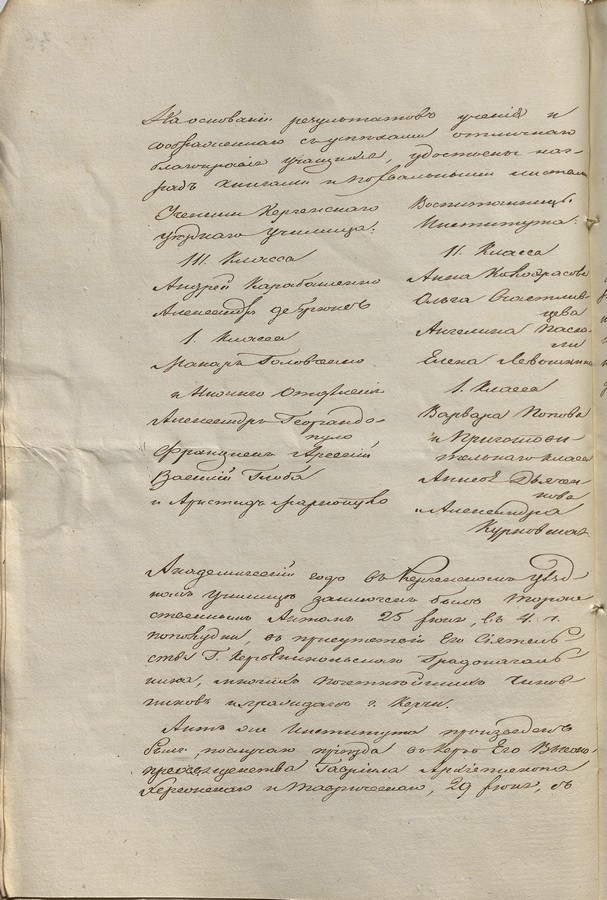 На основаніи результатовъ ученія и
сообразнаго съ успѣхами отличнаго
благонравія учащихся, удостоены наг-
радъ книгами и похвальными листами
Ученики Керченскаго
уѣзднаго училища:
III. Класса
Андрей Карабашенко
Александръ де Брюксъ
I. Класса
Макаръ Головченко
и Нижняго Отдѣленія
Александръ Георгандо-
пуло
Францискъ
Василій Глоба
и Аристидъ
Воспитанницы
Института:
II. Класса
Анна
Ольга Счастлив-
цева
Ангелина Паска-
ли
Елена Левошкина
I. Класса
Варвара Попова
и Приготови-
тельнаго класса
Дьячен-
кова
и Александра
Курновская
Академическій годъ въ Керченскомъ уѣзд-
номъ Училищѣ заключенъ былъ торже-
ственнымъ Актомъ 25 Іюня, въ 4. ч.
пополудни, въ присутствіи Его Сіятель-
ства Г. Керчьеникольскаго Градоначаль-
ника, многихъ почетнѣйшихъ Чинов-
никовъ и гражданъ г. Керчи.
Актъ же Института произведенъ
былъ, по случаю пріѣзда въ Керчь Его Высоко-
преосвященства Гавріила Архіепископа
Херсонскаго и Таврическаго, 29 Іюня, въ